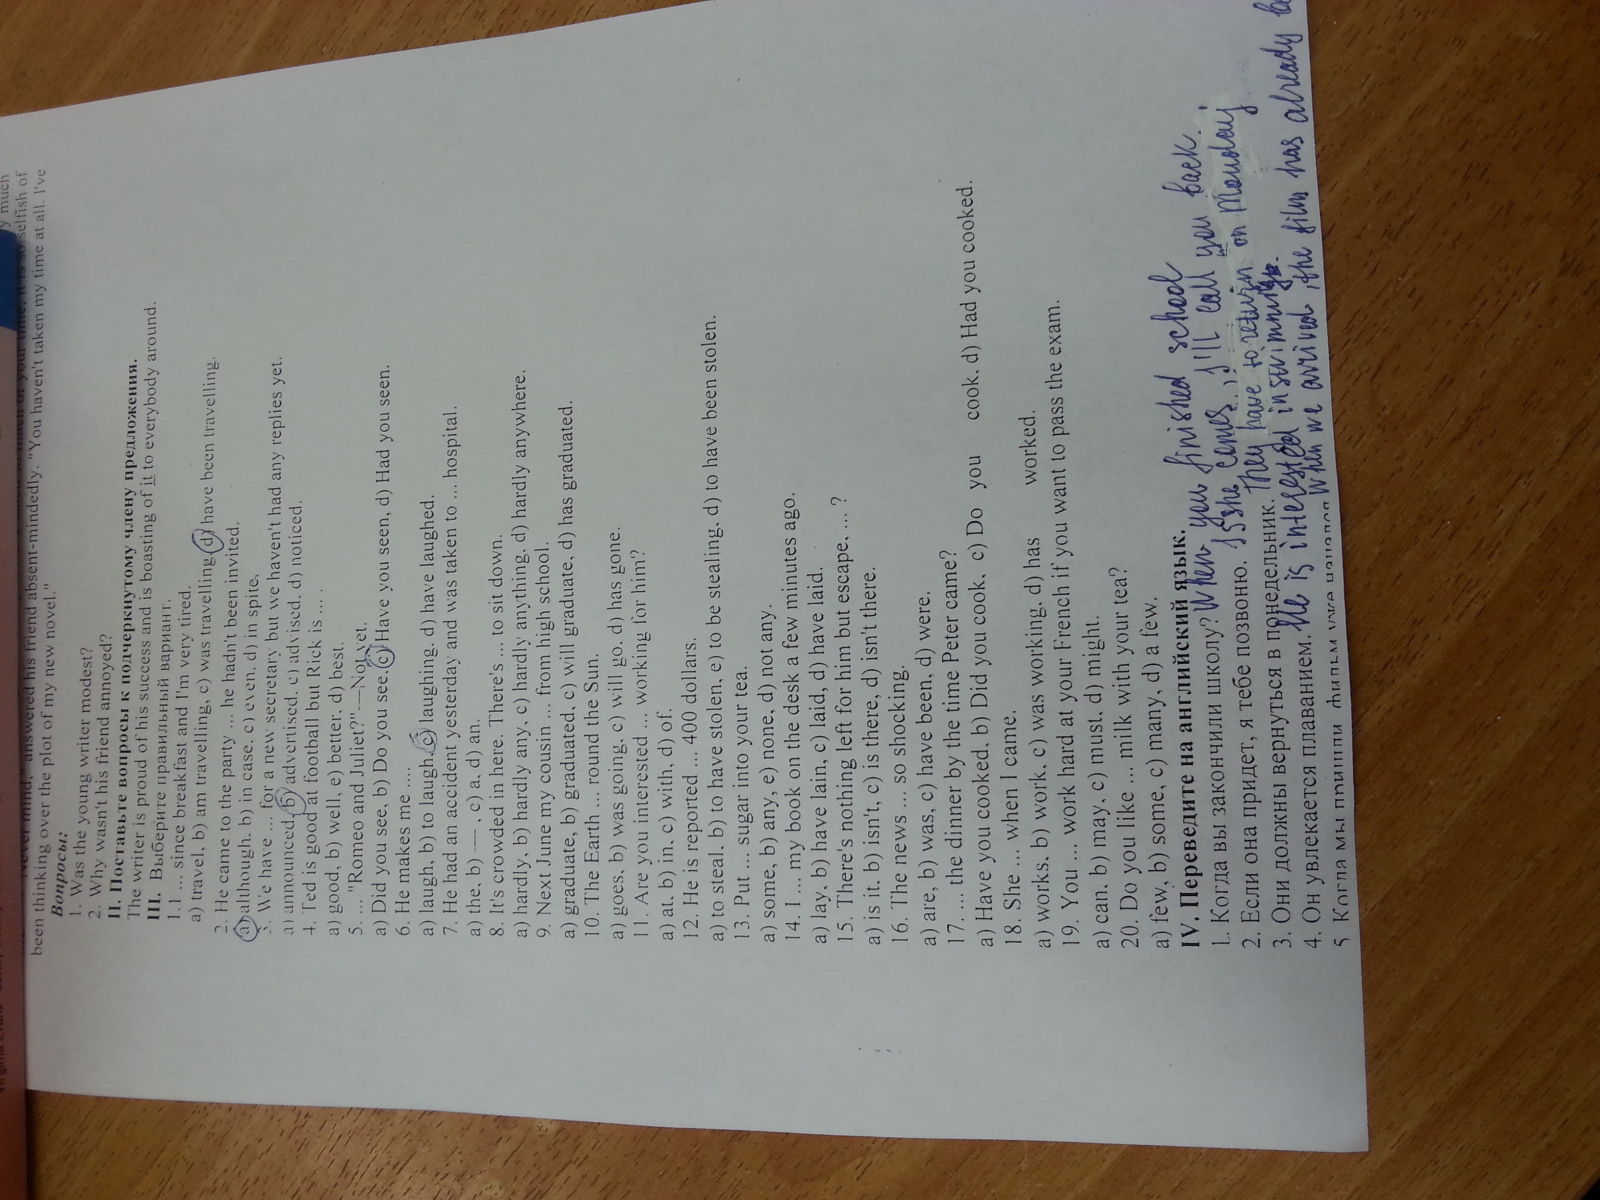 y much
selfish of
"Never mind," answered his friend absent-mindedly. "You haven't taken my time at all. I've
been thinking over the plot of my new novel."
Вопросы:
1. Was the young writer modest?
2. Why wasn't his friend annoyed?
II. Поставьте вопросы к подчеркнутому члену предложения.
The writer is proud of his success and is boasting of it to everybody around.
III. Выберите правильный вариант.
1. I ... since breakfast and I'm very tired.
a) travel, b) am travelling, c) was travelling, d) have been travelling.
2. He came to the party ... he hadn't been invited.
a) although. b) in case. c) even. d) in spite.
3. We have ... for a new secretary but we haven't had any replies yet.
a) announced. b) advertised. c) advised. d) noticed.
4. Ted is good at football but Rick is ... .
a) good, b) well, e) better, d) best.
5. ... "Romeo and Juliet?" — Not yet.
a) Did you see, b) Do you see, c) Have you seen, d) Had you seen.
6. He makes me ....
a) laugh, b) to laugh, c) laughing, d) have laughed.
7. He had an accident yesterday and was taken to ... hospital.
a) the, b) —, c) a, d) an.
8. It's crowded in here. There's ... to sit down.
a) hardly, b) hardly any, c) hardly anything, d) hardly anywhere.
9. Next June my cousin ... from high school.
a) graduate, b) graduated. c) will graduate, d) has graduated.
10. The Earth ... round the Sun.
a) goes, b) was going, c) will go. d) has gone.
11. Are you interested ... working for him?
a) at. b) in, c) with. d) of.
12. He is reported ... 400 dollars.
a) to steal. b) to have stolen. e) to be stealing. d) to have been stolen.
13. Put ... sugar into your tea.
a) some, b) any, e) none, d) not any.
14. I ... my book on the desk a few minutes ago.
a) lay. b) have lain, c) laid, d) have laid.
15. There's nothing left for him but escape, ... ?
a) is it. b) isn't, c) is there, d) isn't there.
16. The news ... so shocking.
a) are, b) was, c) have been, d) were.
17. ... the dinner by the time Peter came?
a) Have you cooked, b) Did you cook, c) Do you cook. d) Had you cooked.
18. She ... when I came.
a) works. b) work. c) was working. d) has worked.
19. You ... work hard at your French if you want to pass the exam.
a) can. b) may. c) must. d) might.
20. Do you like ... milk with your tea?
a) few, b) some, c) many, d) a few.
IV. Переведите на английский язык.
1. Когда вы закончили школу? When you finished school
2. Если она придет, я тебе позвоню. If she comes, I'll call you back.
3. Они должны вернуться в понедельник. They have to return on Monday
4. Он увлекается плаванием. He is interested in swimming.
5 Когда мы пришли фильм уже начался When we arrived, the film has already